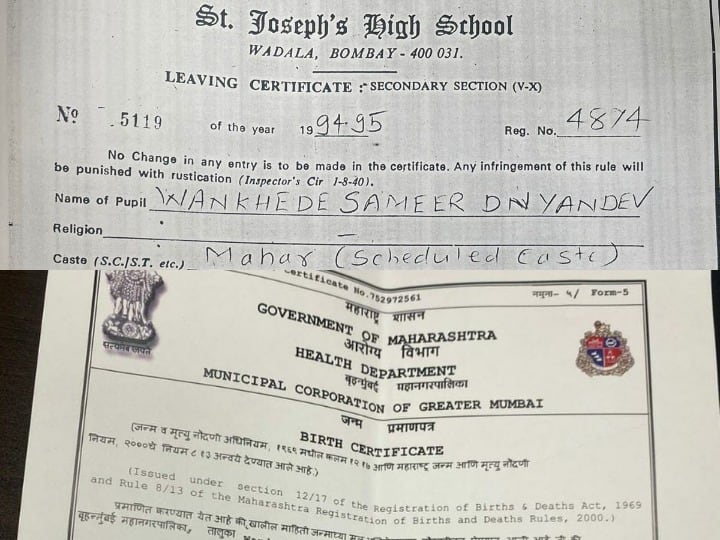 St. Joseph's High School
WADALA, BOMBAY - 400 031.
LEAVING CERTIFICATE :- SECONDARY SECTION (V-X)
Nº 5119 of the year 1994-95 Reg. No. 4874
No Change in any entry is to be made in the certificate. Any infringement of this rule will
be punished with rustication (Inspector's Cir 1-8-40).
Name of Pupil WANKHEDE SAMEER DNYANDEV
Religion –
Caste (S.C./S.T. etc.) Mahar (Scheduled Caste)
Certificate No.752972561
नमूना- ५/ Form-5
महाराष्ट्र शासन
GOVERNMENT OF MAHARASHTRA
आरोग्य विभाग
HEALTH DEPARTMENT
बृहन्मुंबई महानगरपालिका
MUNICIPAL CORPORATION OF GREATER MUMBAI
जन्म प्रमाणपत्र
BIRTH CERTIFICATE
सत्यमेव जयते
(जन्म व मृत्यू नोंदणी अधिनियम, १९६९ मधील कलम १२ १७ आणि महाराष्ट्र जन्म आणि मृत्यू नोंदणी
नियम, २०००चे नियम ८ १३ अन्वये देण्यात आले आहे.)
(Issued under section 12/17 of the Registration of Births & Deaths Act, 1969
and Rule 8/13 of the Maharashtra Registration of Births and Deaths Rules, 2000.)
प्रमाणित करण्यात येत आहे की, खालील माहिती जन्माच्या मूळ
बृहन्मुंबई महानगरपालिका, तालुका